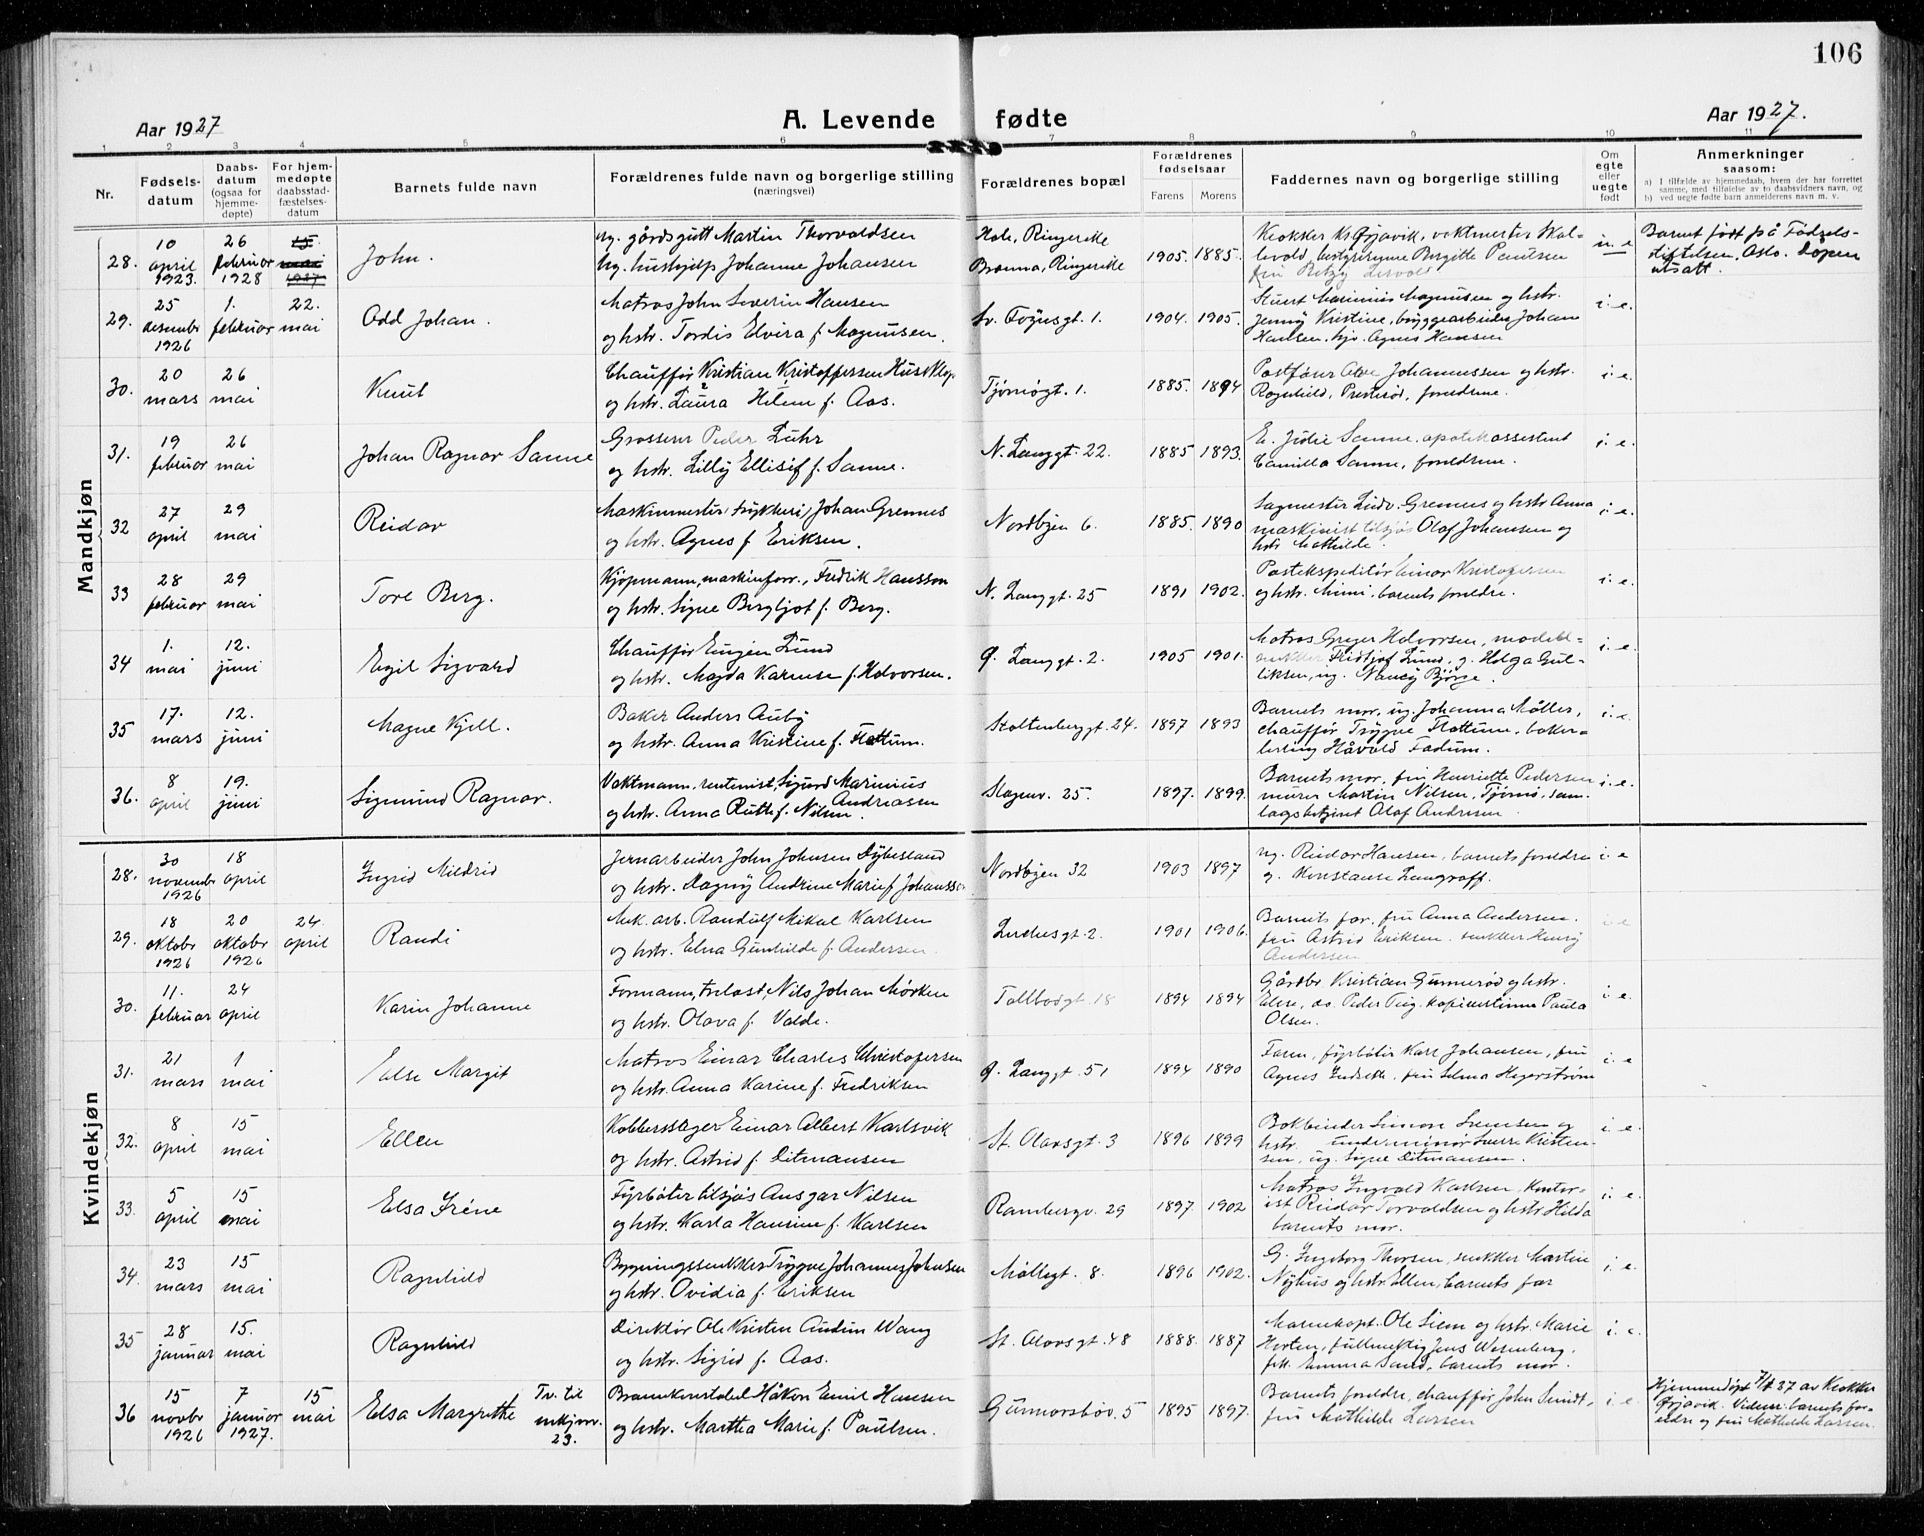 106
Aar 1927
A. Levende fødte
Aar 1927.
1 2 3 4 5 6 7 8 9 10 11
Nr.
Fødsels-
datum
Daabs-
datum
(ogsaa for
hjemme-
døpte)
For hjem-
medøpte
daabsstad-
fæstelses-
datum
Barnets fulde navn
Forældrenes fulde navn og borgerlige stilling
(næringsvei)
Forældrenes bopæl
Forældrenes
fødselsaar
Farens
Morens
Faddernes navn og borgerlige stilling
Om
egte
eller
uegte
født
Anmerkninger
saasom:
a) I tilfælde av hjemmedaab, hvem der har forrettet
samme, med tilføielse av to daabsvidners navn, og
b) ved uegte fødte barn anmelderens navn m. v.
Mandkjøn
28.
10
april
1923.
26
februar
1928
15.
mai
1927
John.
ug. gårdsgutt Martin Thorvaldsen
ug. hushjelp Johanne Johansen
Hole, Ringerike
Ringerike
1905. 1885.
Klokker Kr. Gjøavik, vaktmester
bestyrerinne Birgitte Paulsen
u. e
Barnet født på Fødsels-
stiftelsen, Oslo. Dåpen
utsatt.
29.
25
desembr
1926
1.
februar
22.
mai
Odd Johan.
Matros John Severin Hansen
og hstr. Tordis Elvira f. Magnusen.
Sv. Foynsgt. 1.
1904. 1905.
Stuert Marinius Magnusen og hstr.
Jenny Kristine, bryggearbeider Johan
Hansen, hjv. Agnes Hansen
i. e.
30.
20
mars
26
mai
Knut
Chauffør Kristian Kristoffersen Husklep
og hstr. Laura Helene f. Aas.
Tjømøgt. 1.
1885. 1894
Postfører Olve Johannessen og hstr.
Ragnhild, Presterød, foreldrene.
i. e.
31.
19
februar
26
mai
Johan Ragnar Sanne
Grosserer Peder Luhr
og hstr. Lilly Ellisif f. Sanne.
N. Langgt. 22.
1885 1893.
E. Julie Sanne, apotekassistent
Camilla Sanne, foreldrene.
i. e.
32
27
april
29
mai
Reidar
Maskinmester, Johan Grennes
og hstr. Agnes f. Eriksen.
Nordbyen 6.
1885. 1890
Sagmester Ludv. Grennes og hstr Anna
maskinist tilsjøs Olaf Johansen og
hstr Mathilde.
i. e.
33
28
februar
29
mai
Tore Berg.
Kjøpmann, maskinforr., Fredrik Hansson
og hstr. Signe Bergljot f. Berg.
N. Langgt. 25
1891 1902.
Postekspeditør Einar Kristofersen
og hstr. Mimi, barnets foreldre.
i. e.
34
1.
mai
12.
juni
Egil Sigvard
Chauffør Eugen Lund
og hstr. Magda Karense f. Halvorsen.
Ø. Langgt. 2.
1905 1901.
Matros Greger Halvorsen, modell-
snekker Fridtjof Lund, g. Helga Gul-
liksen, ug. Nancy Bjørge.
i. e.
35
17.
mars
12.
juni
Magne Kjell.
Baker Anders Auby
og hstr. Anna Kristine f. Flattum.
Stoltenberggt. 24.
1897 1893
Barnets mor, ug. Johanna Møller,
chauffør Trygve Flattum, baker-
lerling Håvald Fadum.
i. e.
36.
8
april
19.
juni
Sigmund Ragnar.
Vaktmann, Sigurd Marinius
Andreasen
og hstr. Anna Ruth f. Nilsen.
Slagenv. 25.
1897. 1899.
Barnets mor, fru Henriette Pedersen
murer Martin Nilsen, Tjømø, sam-
lagsbetjent Olaf Andresen
i. e.
Kvindekjøn
28.
30
novembr
1926
18
april
Ingrid Mildrid
Jernarbeider John Johnsen Dybesland
og hstr. Dagny Andrine Marie f Johansson
Nordbyen 32
1903 1897
ug. Reidar Hansen, barnets foreldre
g. Konstanse Langraff.
i. e
29.
18
oktobr
1926
20
oktobr
1926
24.
april
Randi
Mek. arb. Randulf Mikal Karlsen
og hstr. Elna Gunhilde f. Andersen
Lindusgt. 2.
1901 1906.
Barnets far, fru Anna Andersen.
fru Astrid Eriksen, snekker Henry
Andersen
i e
30.
11.
februar
24
april
Karin Johanne
Formann, trelast, Nils Johan Mørken
og hstr. Olava f. Valde.
Tollbodgt. 18
1894 1894
Gårdbr Kristian Gunnerød og hstr.
Elise, do. Peder Teig, kopieustinne Paula
Olsen.
i. e.
31.
21
mars
1
mai
Else Margit
Matros Einar Charles Christofersen
og hstr. Anna Karine f. Fredriksen
Ø. Langgt. 51
1894 1890
Faren, fyrbøter Karl Johansen, fru
Agnes Indseth, fru Selma Hegerstrøm
i. e
32.
8
april
15
mai
Ellen
Kobberslager Einar Albert Karlsvik
og hstr. Astrid f. Ditmansen
St. Olavsgt. 3
1896 1899
Bokbinder Simon Svensen og
hstr. underminør Sverre Kristen-
sen, ug. Signe Ditmansen.
i. e.
33.
5
april
15
mai
Elsa Iréne
Fyrbøter tilsjøs Ansgar Nilsen
og hstr. Karla Hansine f. Karlsen
Rambergv. 29
1897. 1902
Matros Ingvald Karlsen, kontor-
ist Reidar Torvaldsen og hstr Hilda
barnets mor.
i. e.
34.
23
mars
15
mai
Ragnhild
Bygningssnekker Trygve Johannes Johnsen
og hstr. Ovidia f. Eriksen
Møllegt. 8.
1896 1902.
G. Ingeborg Thorsen, snekker Martin
Nyhus og hstr Ellen, barnets far
i. e.
35
28
januar
15.
mai
Ragnhild
Direktør Ole Kristen Audun Wang
og hstr. Sigrid f. Aas.
St. Olavsgt. 48
1888. 1887
Marinekapt. Ole Siem og hstr. Marie
Horten, fullmektig Jens Wesenberg,
frk. Emma Sand, barnets mor.
i. e.
36
15
novbr
1926
7
januar
1927.
15
mai
Elsa Margrethe
Tv. til
mkjønn
23.
Brannkonstabel Håkon Emil Hansen
og hstr. Marthea Marie f. Paulsen.
Gunnarsbøv. 5
1895 1897.
Barnets foreldre, chauffør John Smidt,
fru Mathilde Larsen
i. e
Hjemmedøpt 7/1 27 av klokker
Gjøavik. Vidner: barnets for-
eldre og fru Mathilde Larsen.